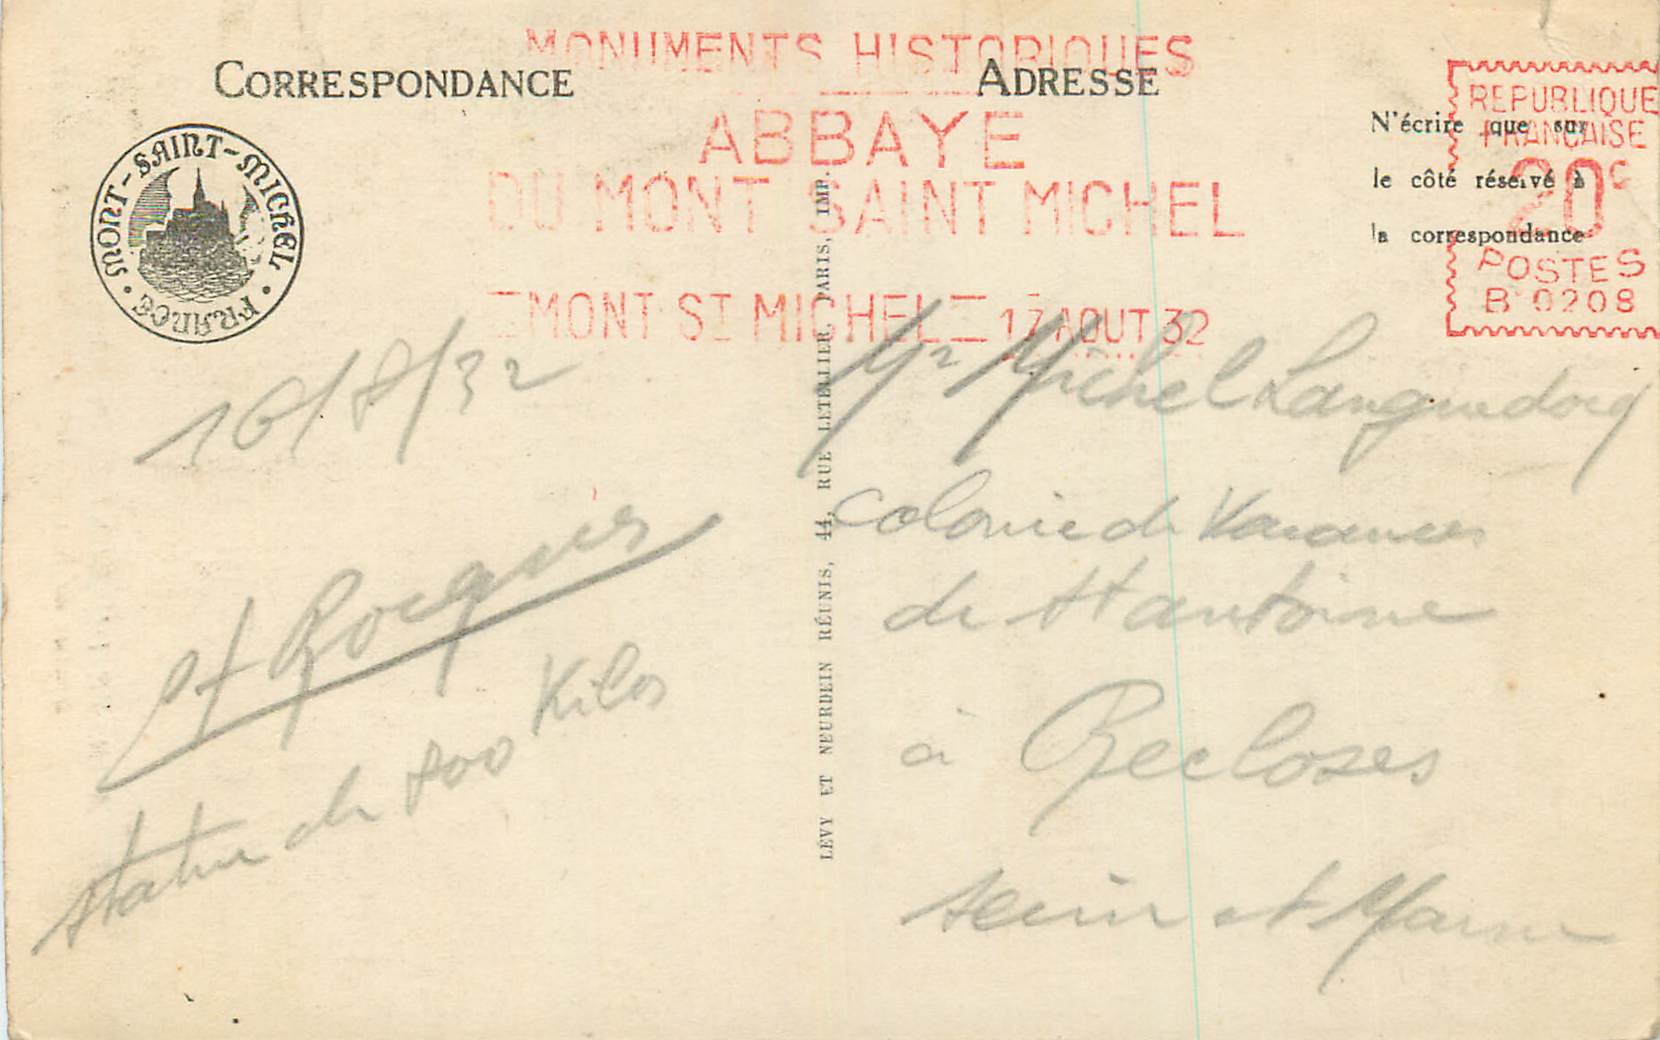 MONUMENTS HISTORIQUES
CORRESPONDANCE
ADRESSE
ABBAYE
DU MONT SAINT MICHEL
MONT ST MICHEL 17 AOUT 32
REPUBLIQUE
FRANCAISE
20c
POSTES
B 0208
N'écrire que sur
le côté réservé à
la correspondance
MONT-SAINT-MICHEL
FRANCE
16/8/32
statue de 800 Kilos
LÉVY ET NEURDEIN RÉUNIS, 44, RUE LETELLIER, PARIS, IMP.
Mr Michel Languedocq
colonie de Vacances
de St antoine
à Recloses
seine et Marne